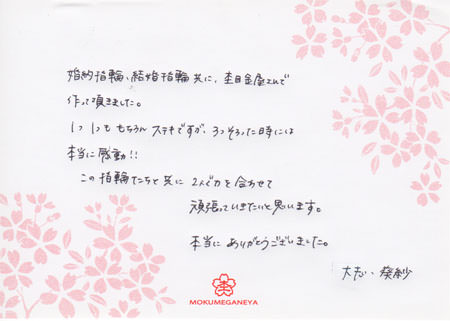 婚約指輪、結婚指輪共に、杢目金屋さんで
作って頂きました。
1つ1つも もちろん ステキですが、3つそろった時には
本当に感動!!
この指輪たちと共に 2人で力を合わせて
頑張っていきたいと思います。
本当に ありがとうございました。
大志・葵紗
杢
MOKUMEGANEYA